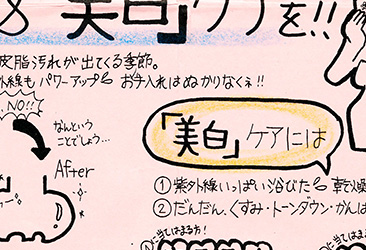 「美白」ケアを!!
皮脂汚れが出てくる季節。
外線もパワーアップ お手入れはぬかりなくぇ!!
NO!!
なんという
ことでしょう…
After
「美白」ケアには
①紫外線いっぱい浴びた
②だんだん、くすみ・トーンダウン・かんば
に当てはまる方!
に当てはま